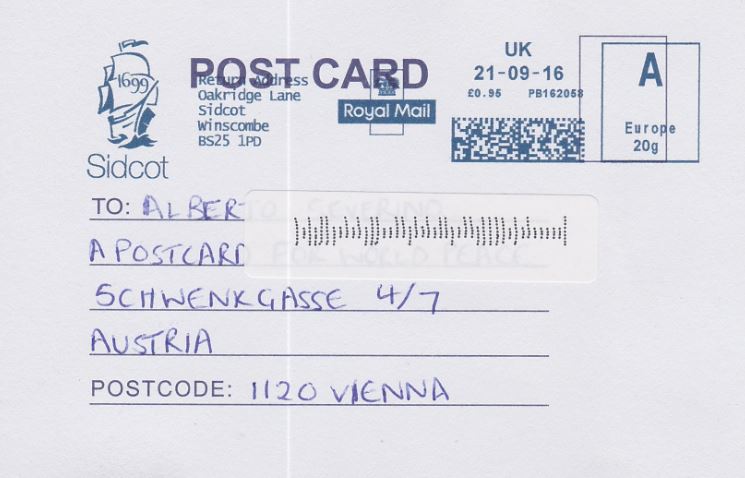 POST CARD
1699
Sidcot
Return Address
Oakridge Lane
Sidcot
Winscombe
BS25 1PD
Royal Mail
UK
21-09-16
£0.95 PB162058
A
Europe
20g
TO: ALBERTO SEVERINO
A POSTCARD FOR WORLD PEACE
SCHWENKGASSE 4/7
AUSTRIA
POSTCODE: 1120 VIENNA